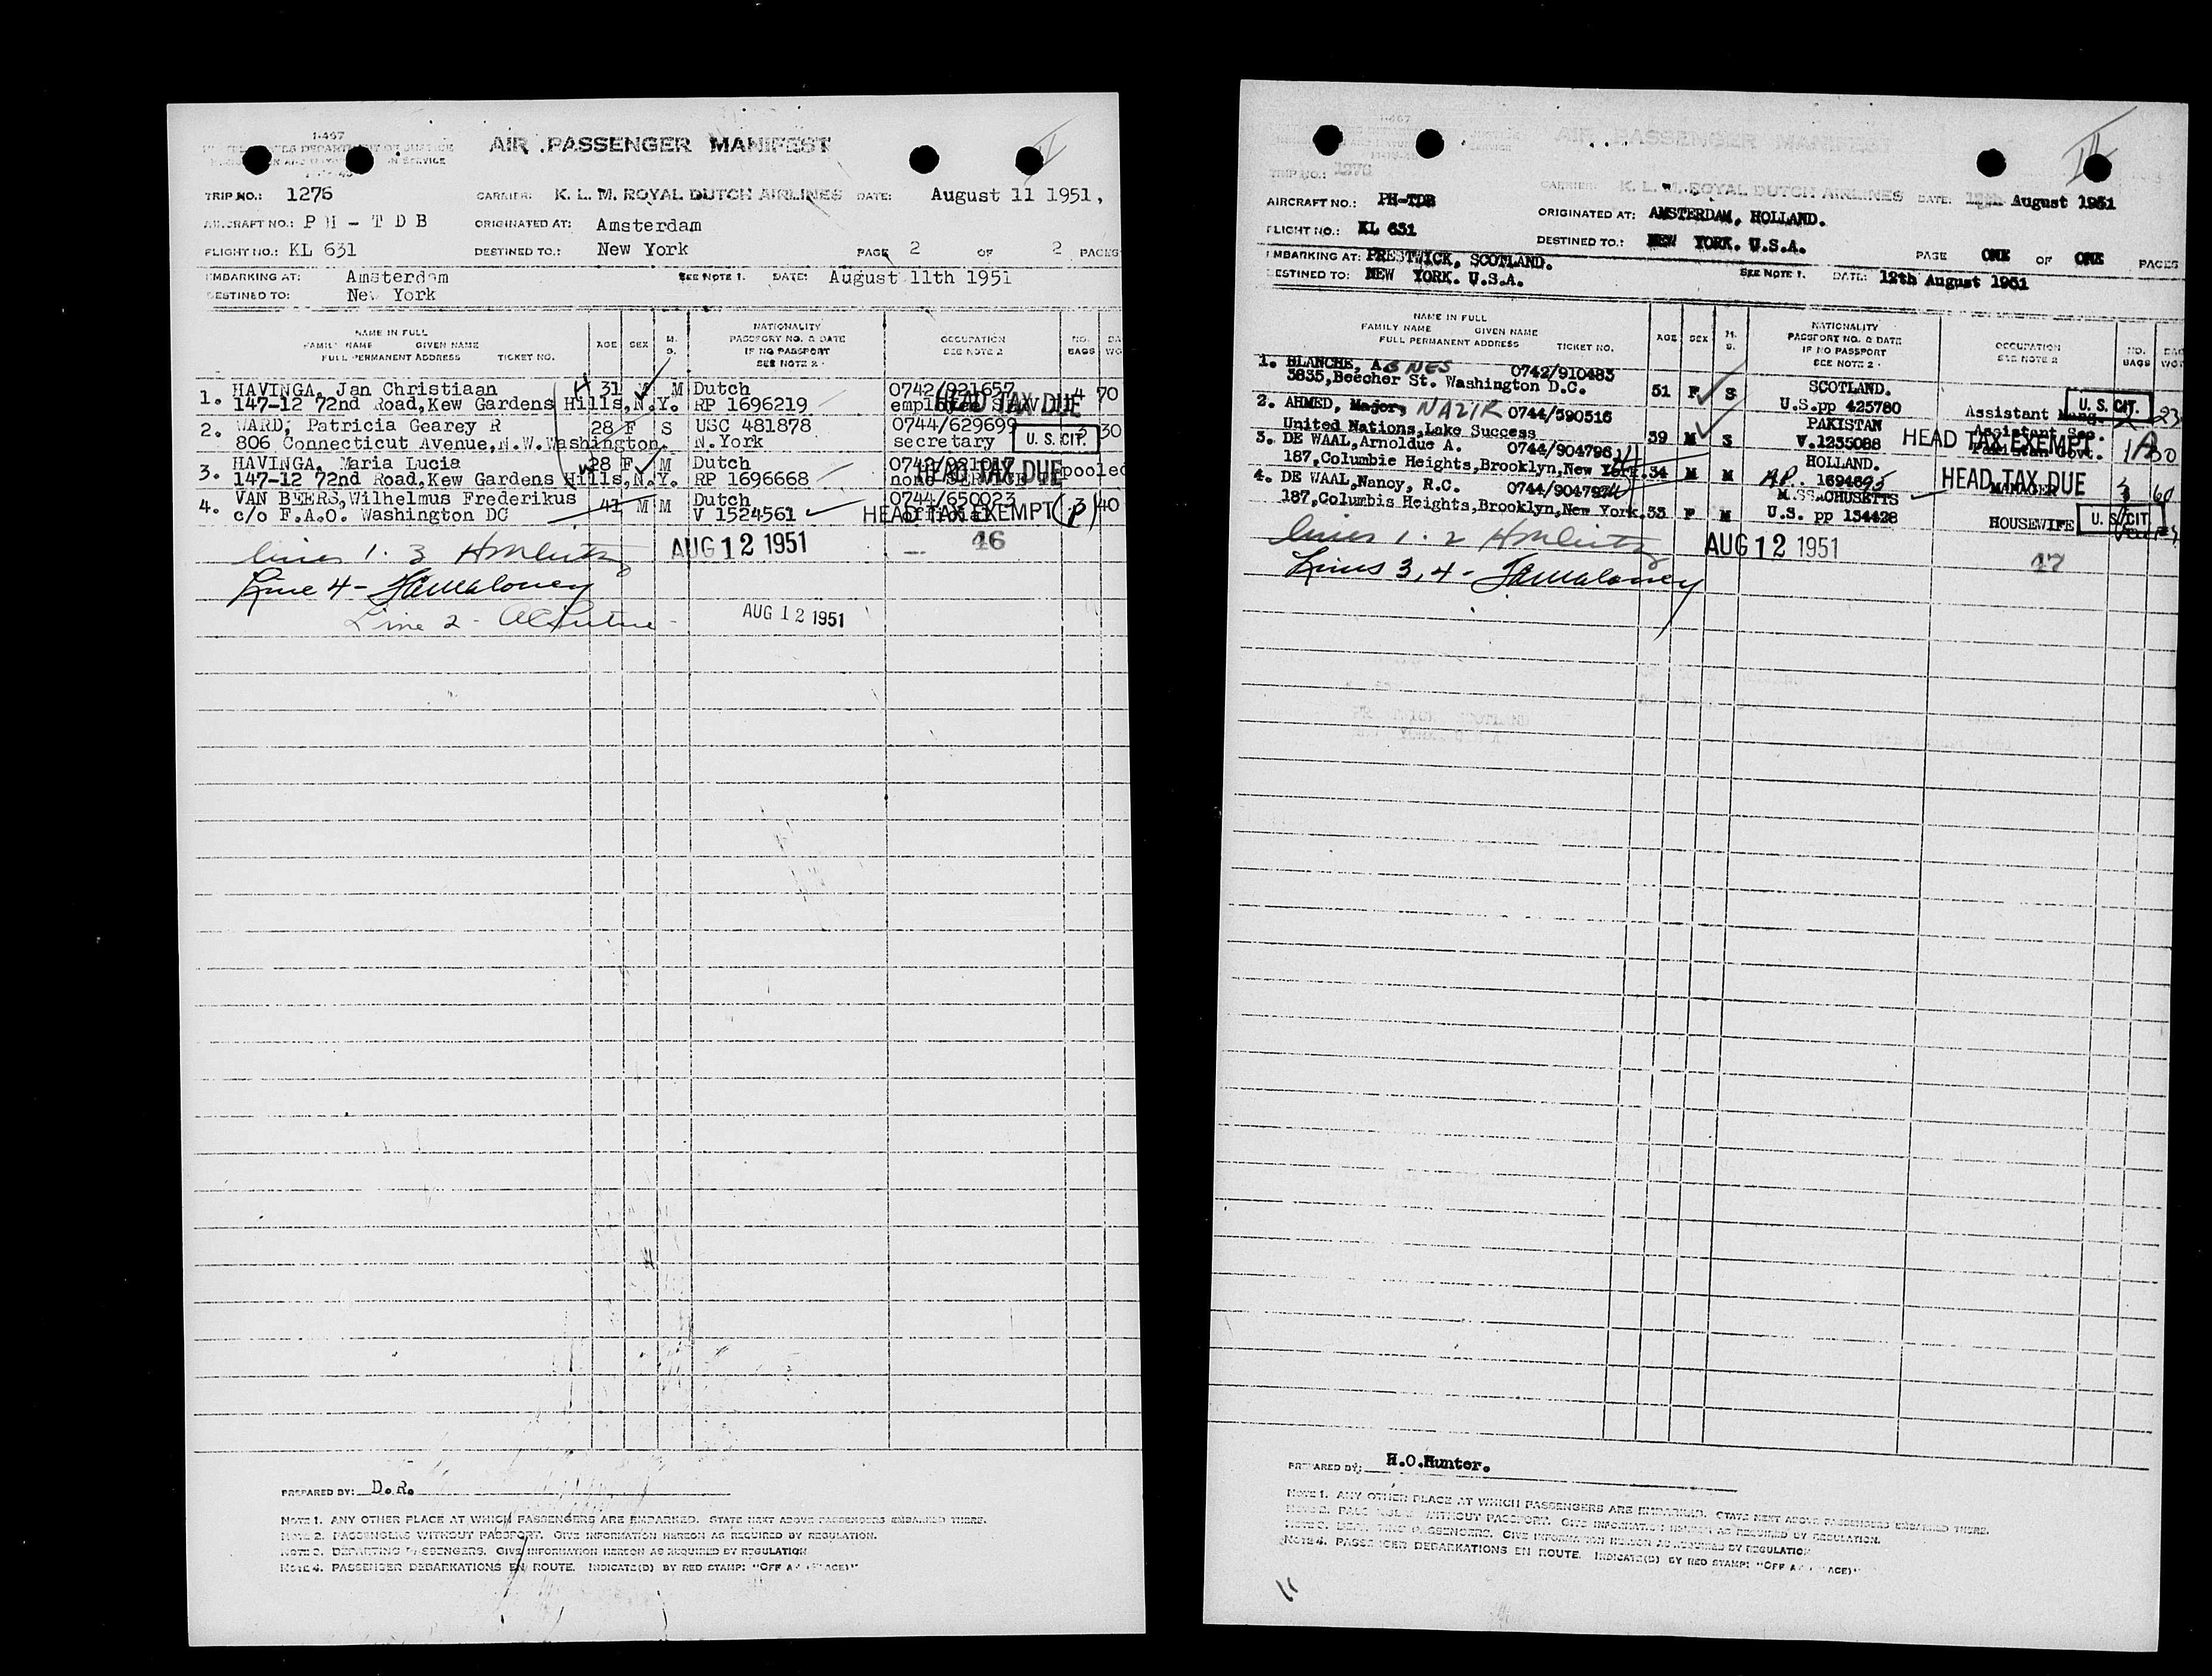 I-467
AIR PASSENGER MANIFEST
TRIP NO.: 1276 CARRIER: K. L. M. ROYAL DUTCH AIRLINES DATE: August 11 1951,
AIRCRAFT NO.: P H - T D B ORIGINATED AT: Amsterdam
FLIGHT NO.: KL 631 DESTINED TO: New York PAGE 2 OF 2 PAGES
EMBARKING AT: Amsterdam SEE NOTE 1. DATE: August 11th 1951
DESTINED TO: New York
NAME IN FULL
FAMILY NAME GIVEN NAME
FULL PERMANENT ADDRESS TICKET NO.
AGE SEX M. S.
NATIONALITY
PASSPORT NO. & DATE
IF NO PASSPORT
SEE NOTE 2
OCCUPATION
SEE NOTE 2
NO. BAGS
1. HAVINGA, Jan Christiaan 31 M M Dutch 0742/921657 4 70
147-12 72nd Road,Kew Gardens Hills,N.Y. RP 1696219 HEAD TAX DUE
2. WARD, Patricia Gearey R 28 F S USC 481878 0744/629699 3 30
806 Connecticut Avenue,N.W.Washington. N.York secretary U. S. CIT.
3. HAVINGA, Maria Lucia 28 F M Dutch pooled
147-12 72nd Road,Kew Gardens Hills,N.Y. RP 1696668 none HEAD TAX DUE
4. VAN BEERS,Wilhelmus Frederikus 41 M M Dutch 0744/650023 3 40
c/o F.A.O. Washington DC V 1524561 HEAD TAX EXEMPT
lines 1. 3
AUG 12 1951 46
Line 4 -
Line 2 -
AUG 12 1951
PREPARED BY: D.R.
NOTE 1. ANY OTHER PLACE AT WHICH PASSENGERS ARE EMBARKED. STATE NEXT ABOVE PASSENGERS EMBARKED THERE.
NOTE 2. PASSENGERS WITHOUT PASSPORT. GIVE INFORMATION HEREON AS REQUIRED BY REGULATION.
NOTE 3. DEPARTING PASSENGERS. GIVE INFORMATION HEREON AS REQUIRED BY REGULATION
NOTE 4. PASSENGER DEBARKATIONS EN ROUTE. INDICATE(D) BY RED STAMP: "OFF AT (PLACE)"
I-467
AIR PASSENGER MANIFEST
TRIP NO.:
CARRIER: K. L. M. ROYAL DUTCH AIRLINES DATE: 12th August 1951
AIRCRAFT NO.: PH-TDB ORIGINATED AT: AMSTERDAM, HOLLAND.
FLIGHT NO.: KL 631 DESTINED TO: NEW YORK. U.S.A. PAGE ONE OF ONE PAGES
EMBARKING AT: PRESTWICK, SCOTLAND. SEE NOTE 1. DATE: 12th August 1951
DESTINED TO: NEW YORK. U.S.A.
NAME IN FULL
FAMILY NAME GIVEN NAME
FULL PERMANENT ADDRESS TICKET NO.
AGE SEX M. S.
NATIONALITY
PASSPORT NO. & DATE
IF NO PASSPORT
SEE NOTE 2
OCCUPATION
SEE NOTE 2
NO. BAGS
1. BLANCHE, AGNES 0742/910483 SCOTLAND.
3835,Beecher St. Washington D.C. 51 F S U.S.pp 425780 Assistant U. S. CIT. 23
2. AHMED, Major, NAZIR 0744/590516 PAKISTAN Assistant Sec.
United Nations,Lake Success 39 M S V.1235088 HEAD TAX EXEMPT
3. DE WAAL,Arnoldue A. 0744/904796 HOLLAND.
187,Columbie Heights,Brooklyn,New York. 34 M M 1694695 HEAD TAX DUE MANAGER 60
4. DE WAAL,Nancy, R.C. MASSACHUSETTS
187,Columbis Heights,Brooklyn,New York. 33 F M U.S. pp 134428 HOUSEWIFE U. S. CIT
lines 1. 2
AUG 12 1951 47
Lines 3, 4 -
PREPARED BY: H.O.Hunter.
NOTE 1. ANY OTHER PLACE AT WHICH PASSENGERS ARE EMBARKED. STATE NEXT ABOVE PASSENGERS EMBARKED THERE.
NOTE 2. WITHOUT PASSPORT. GIVE INFORMATION HEREON AS REQUIRED BY REGULATION.
NOTE 3. DEPARTING PASSENGERS. GIVE INFORMATION HEREON AS REQUIRED BY REGULATION
NOTE 4. PASSENGER DEBARKATIONS EN ROUTE. INDICATE(D) BY RED STAMP: "OFF AT (PLACE)"